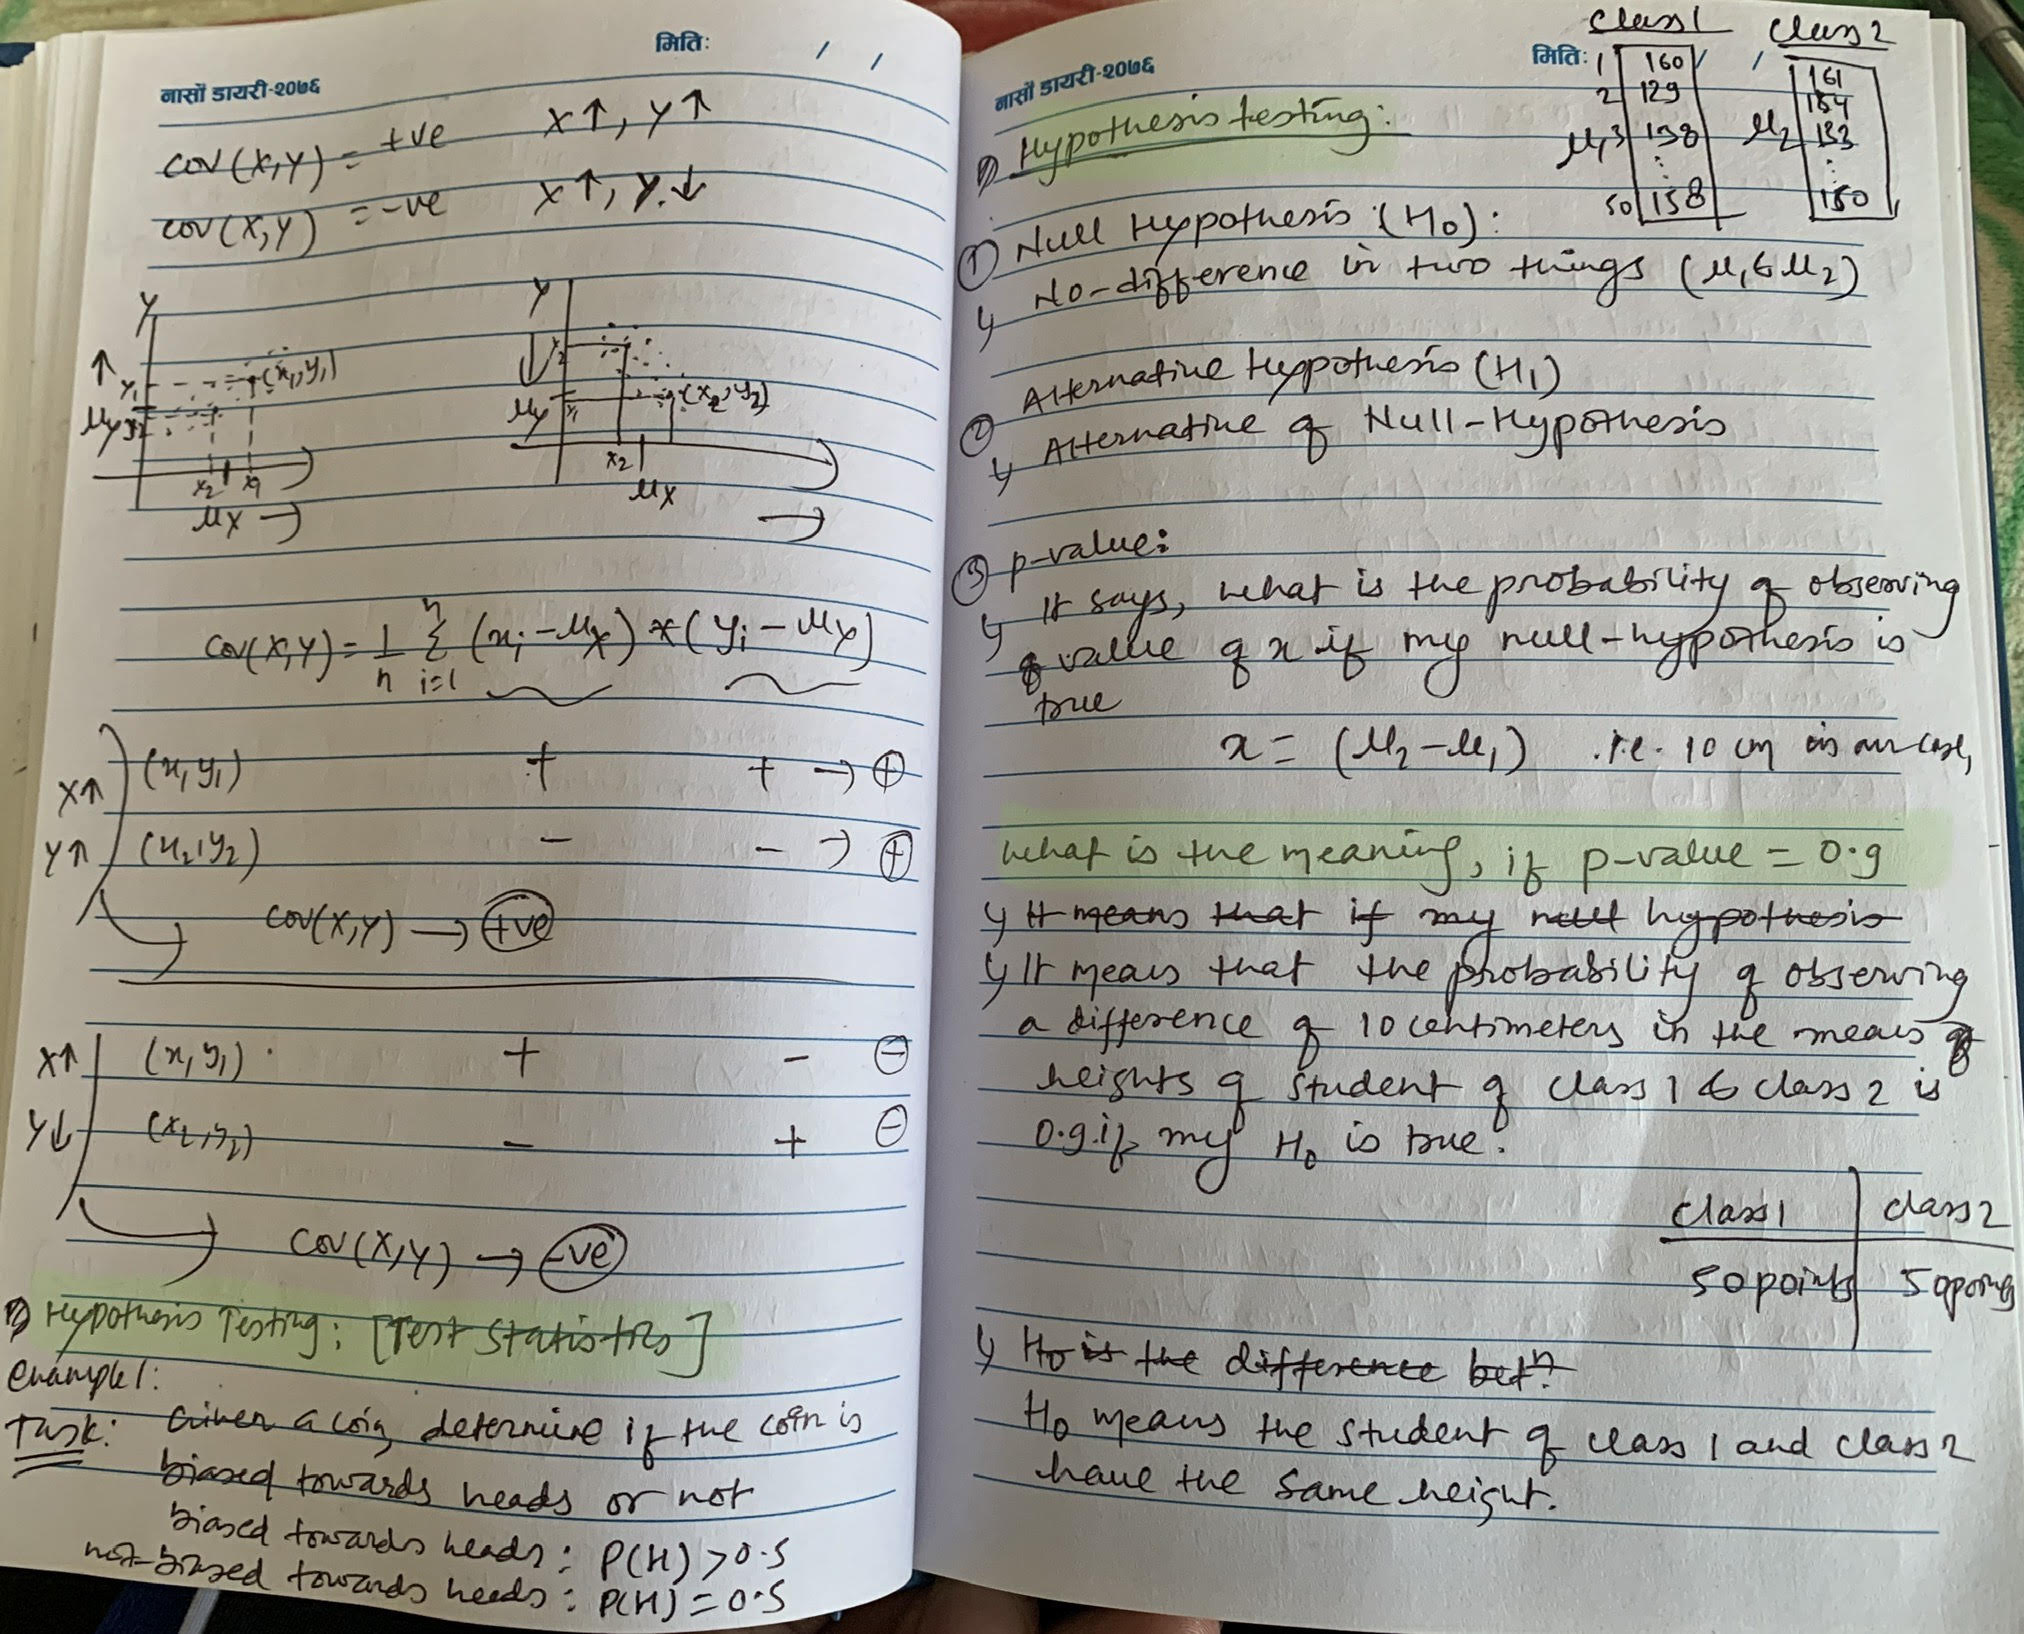 मितिः / /
नासों डायरी-२०७६
cov(X,Y) = +ve X↑, Y↑
cov(X,Y) = -ve X↑, Y↓
Y
y₁
(x₁,y₁)
μy
y₂
x₂ x₁
μx →
Y
y₂
μy
y₁
(x₂,y₂)
x₂
μx
→
cov(X,Y) = 1/n n Σ i=1 (xi - μx) * (yi - μy)
X↑ (x₁y₁) + + → ⊕
Y↑ (x₂,y₂) - - → ⊕
cov(X,Y) → +ve
X↑ (x₁y₁) + - ⊖
Y↓ (x₂,y₂) - + ⊖
cov(X,Y) → -ve
Hypothesis Testing: [Test Statistics]
Example1:
Task: Given a coin, determine if the coin is
biased towards heads or not
biased towards heads: P(H) > 0.5
not-biased towards heads: P(H) = 0.5
नासों डायरी-२०७६
मितिः / /
class1 class2
1 160 161
2 129 184
μ₁ 3 138 μ₂ 133
⋮ ⋮
50 158 150
Hypothesis testing:
① Null Hypothesis (H₀):
↳ No-difference in two things (μ₁ & μ₂)
② Alternative Hypothesis (H₁)
↳ Alternative of Null-Hypothesis
③ p-value:
↳ It says, what is the probability of observing
value of x if my null-hypothesis is
true
x = (μ₂-μ₁) .i.e. 10 cm in our case,
what is the meaning, if p-value = 0.9
↳ It means that if my null hypothesis
↳ It means that the probability of observing
a difference of 10 centimeters in the means of
heights of student of class 1 & class 2 is
0.9 if my H₀ is true.
class1 class2
50 points 50 points
↳ H₀ is the difference betⁿ.
H₀ means the student of class 1 and class 2
have the same height.